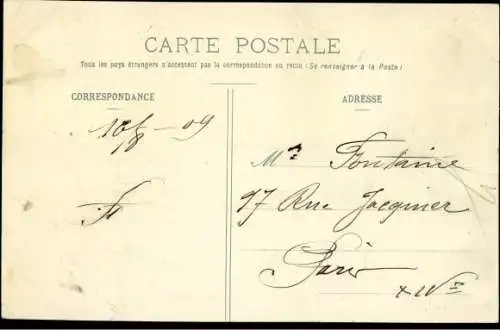 CARTE POSTALE
Tous les pays étrangers n'acceptent pas la correspondance au recto (Se renseigner à la Poste)
CORRESPONDANCE
ADRESSE
10/8 - 09
Mr Fontaine
97 Rue Jacquier
Paris
XIVe